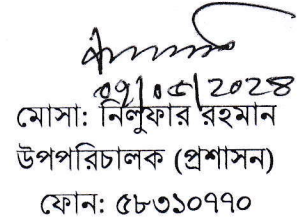 ০৭/০৫/২০২৪
মোসা: নিলুফার রহমান
উপপরিচালক (প্রশাসন)
ফোন: ৫৮৩১০৭৭০